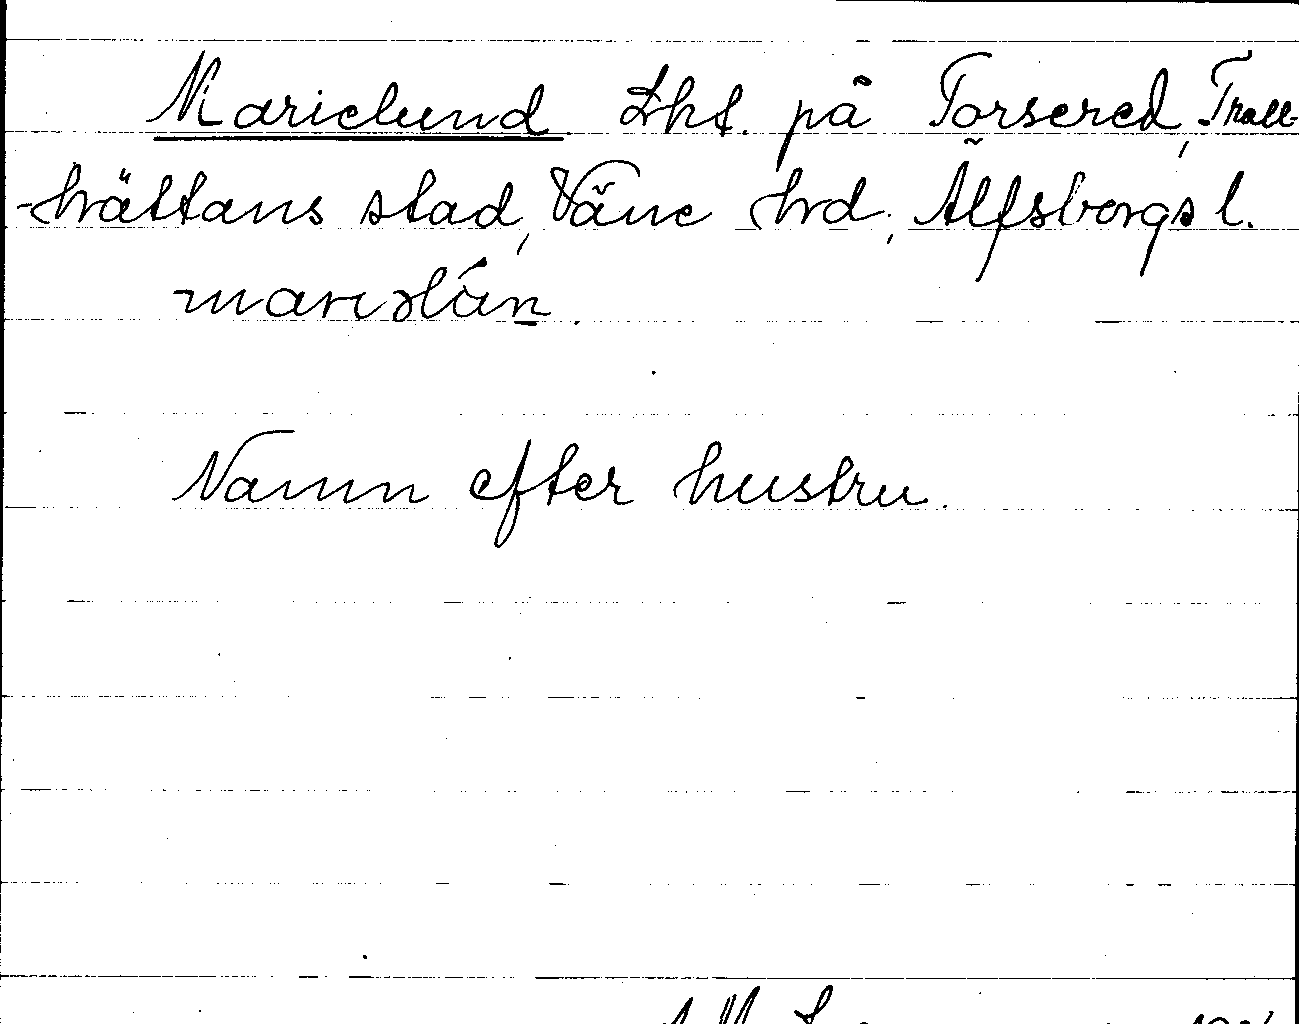 Marielund Lht. på Torsered, Troll-
-hättans stad, Väne hrd, Älfsborgs l.
Namn efter hustru.